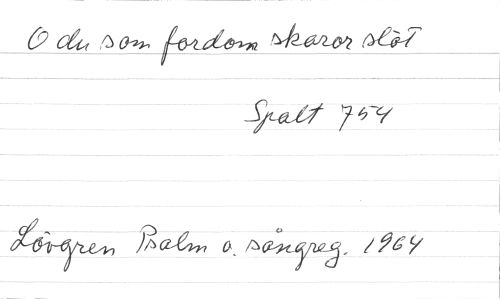 O du som fordom skaror slöt
Spalt 754
Lövgren Psalm o. sångreg. 1964